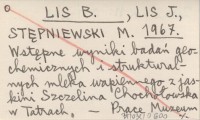 LIS B., LIS J.,
STĘPNIEWSKI M. 1967.
Wstępne wyniki badań geo-
chemicznych i struktural-
nych mleka wapiennego z jas-
kini Szczelina Chochołowska
w Tatrach. — Prace Muzeum